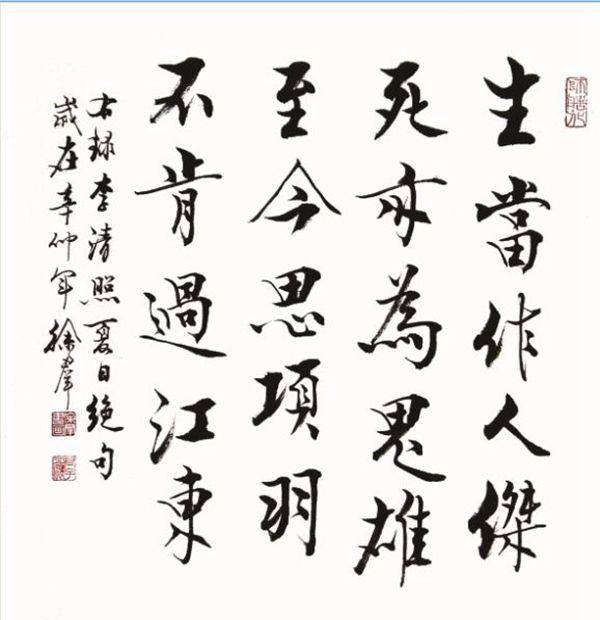 生當作人傑
死亦為鬼雄
至今思項羽
不肯過江東
右録李清照夏日絶句
歲在辛卯年徐